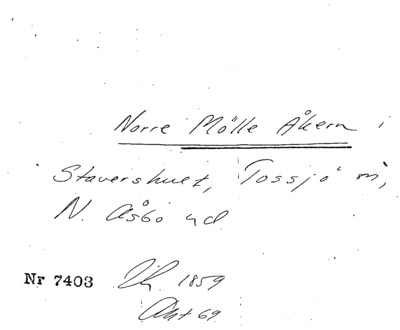 Norre Mölle Åkern i
Stavershult, Tossjö sn,
N. Åsbo hd
Nr 7403 1859
Akt 69